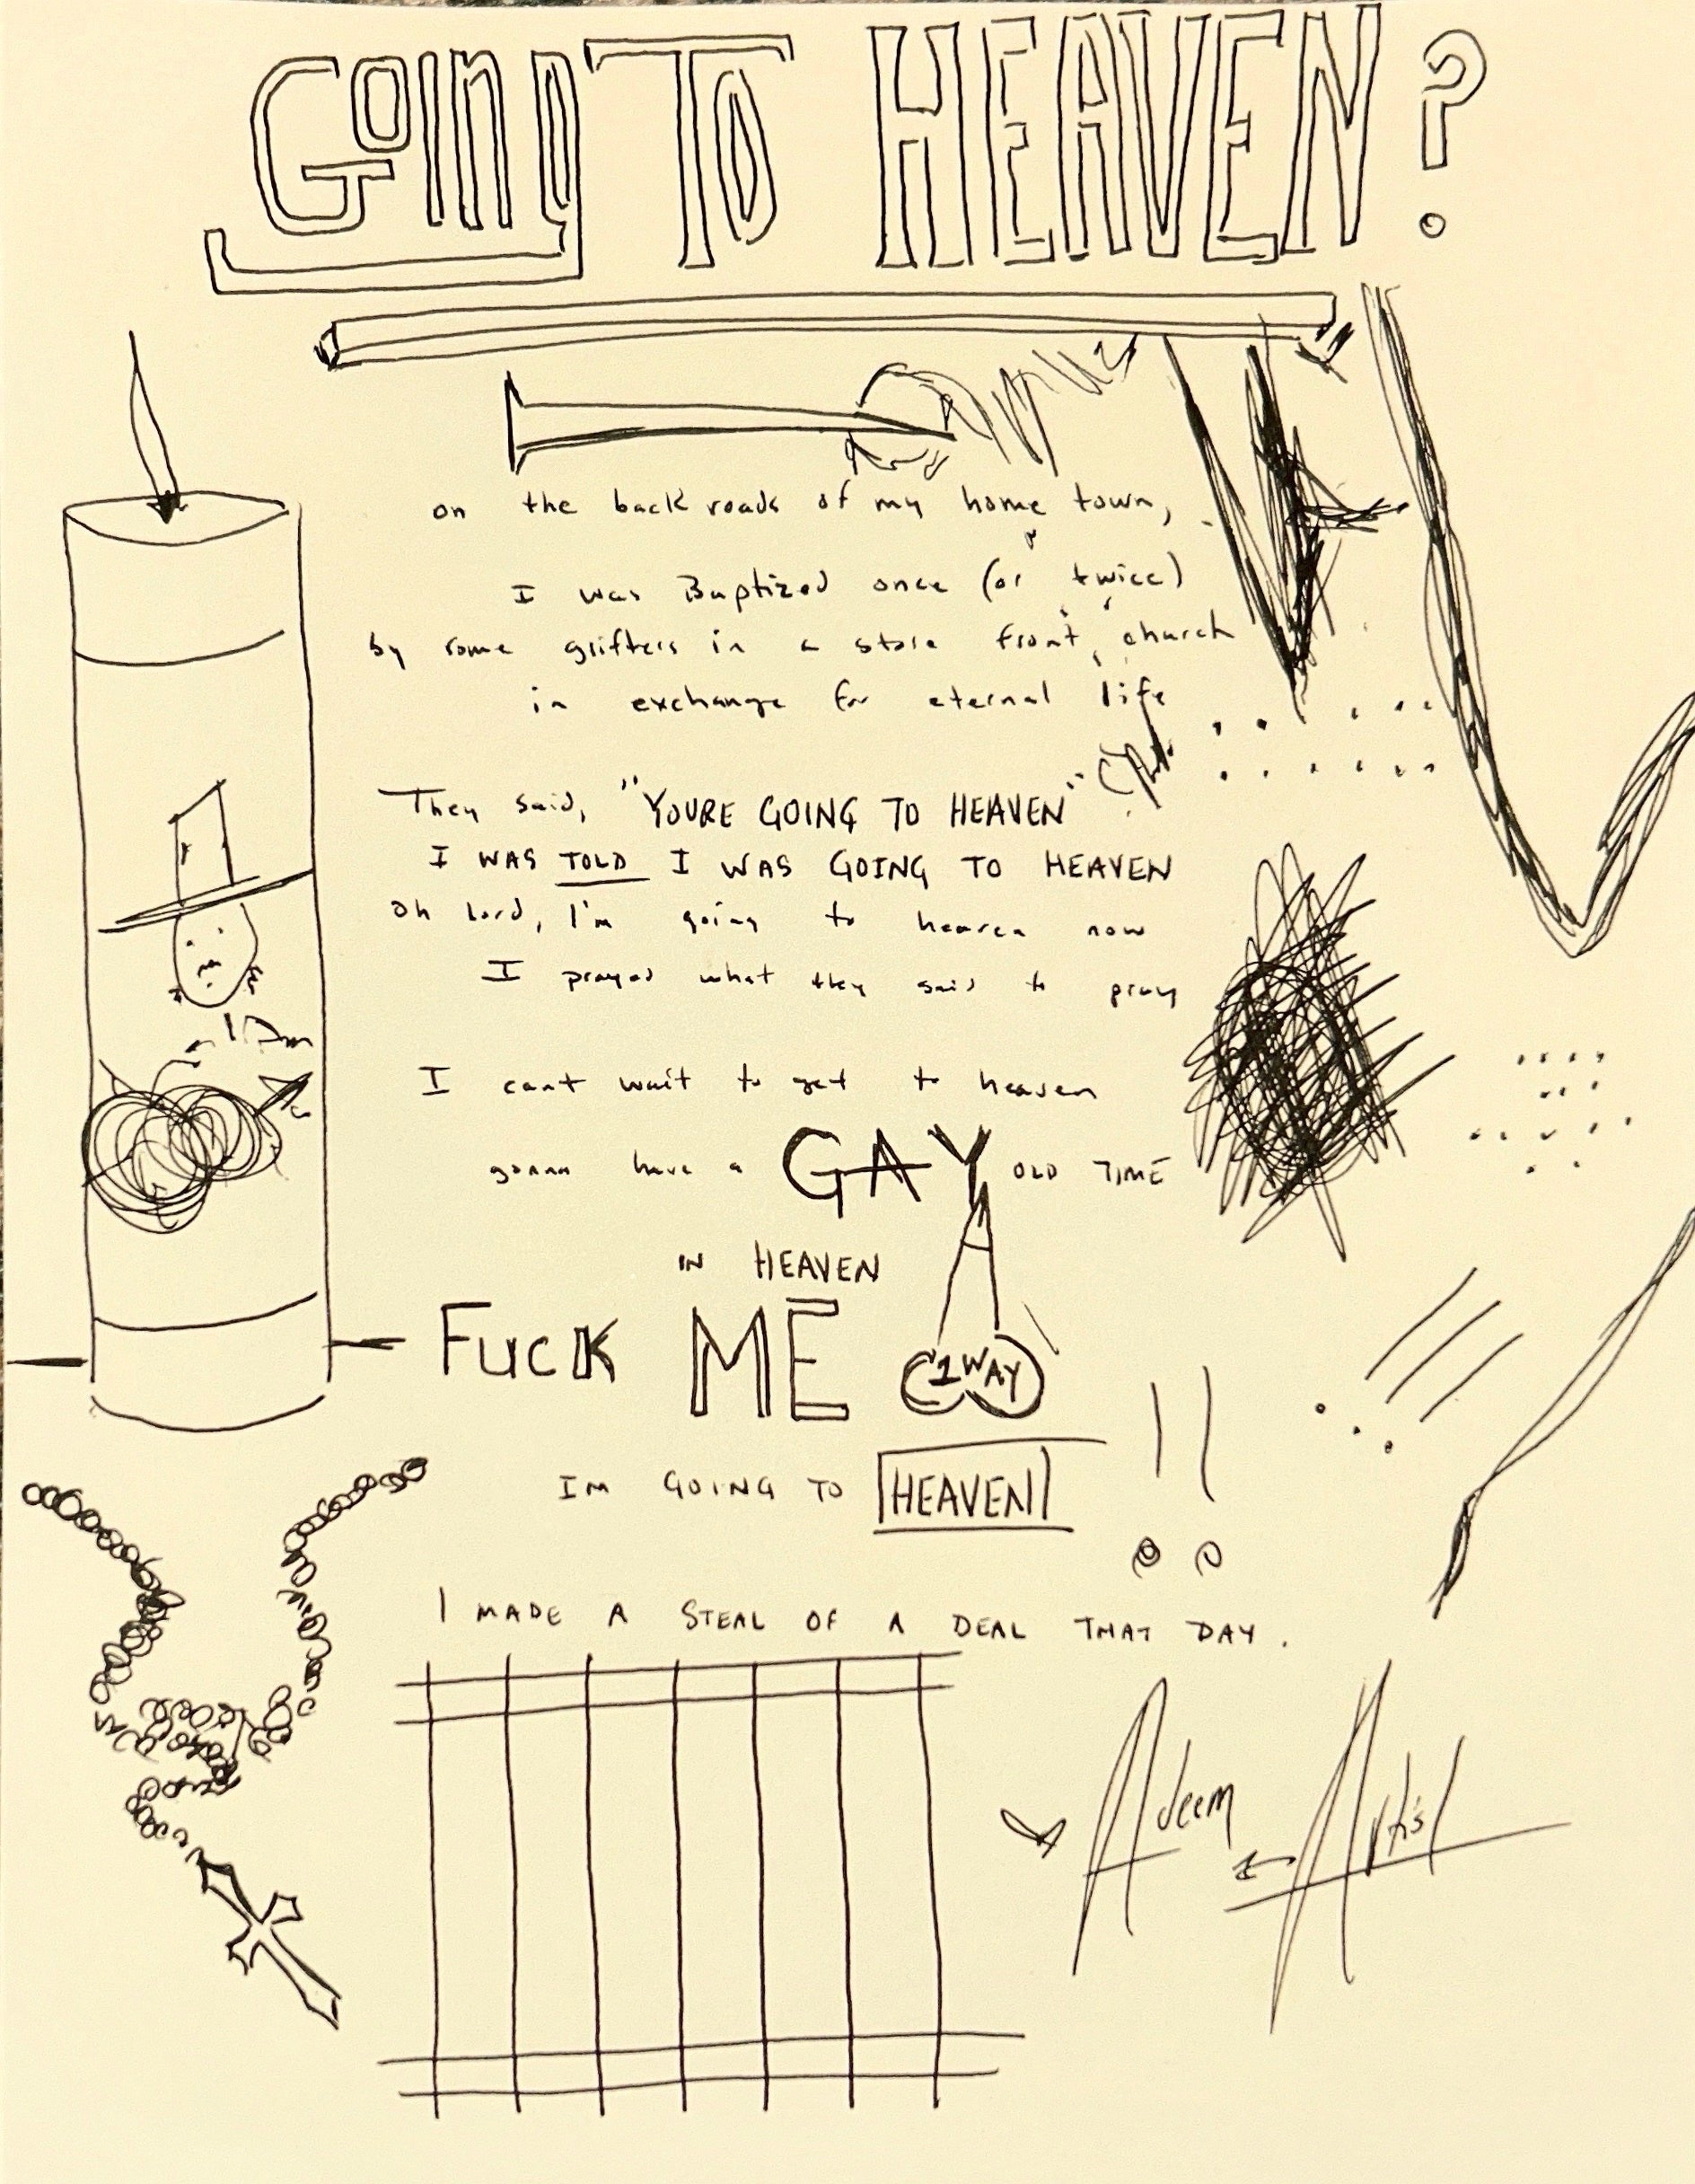 GOING TO HEAVEN?
on the back roads of my home town,
I was Baptized once (or twice)
by some grifters in a store front church
in exchange for eternal life
They said, "YOURE GOING TO HEAVEN"
I WAS TOLD I WAS GOING TO HEAVEN
oh lord, I'm going to heaven now
I prayed what they said to pray
I cant wait to get to heaven
gonna have a GAY OLD TIME
IN HEAVEN
FUCK ME
1 WAY
IM GOING TO HEAVEN !!
I MADE A STEAL OF A DEAL THAT DAY.
Adeem Artist